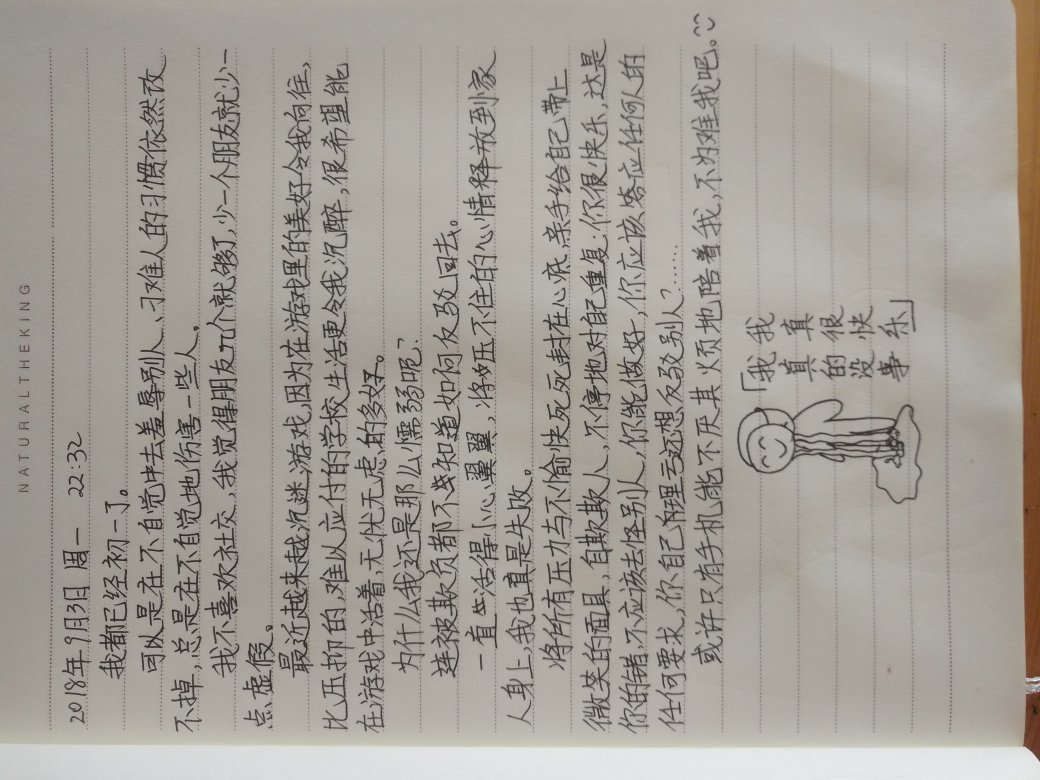 NATURALTHEKING
2018年9月3日 周一 22:32
我都已经初一了。
可以是在不自觉中去羞辱别人、刁难人的习惯依然改
不掉,总是在不自觉地伤害一些人。
我不喜欢社交,我觉得朋友几个就够了,少一个朋友就少一
点虚假。
最近越来越沉迷游戏,因为在游戏里的美好令我向往,
比压抑的,难以应付的学校生活更令我沉醉,很希望能
在游戏中活着,无忧无虑,的多好。
为什么我还是那么懦弱呢?
连被欺负都不知道如何反驳回去。
一直活得小心翼翼,将压不住的心情释放到家
人身上,我也真是失败。
将所有压力与不愉快死死封在心底,亲手给自己带上
微笑的面具,自欺欺人,不停地对自己重复,你很快乐,这是
你的错,不应该去怪别人,你能做好,你应该答应任何人的
任何要求,你自己有理亏还想反驳别人?……
或许只有手机能不厌其烦地陪着我,不为难我吧。
「我真的没事
我真很快乐」